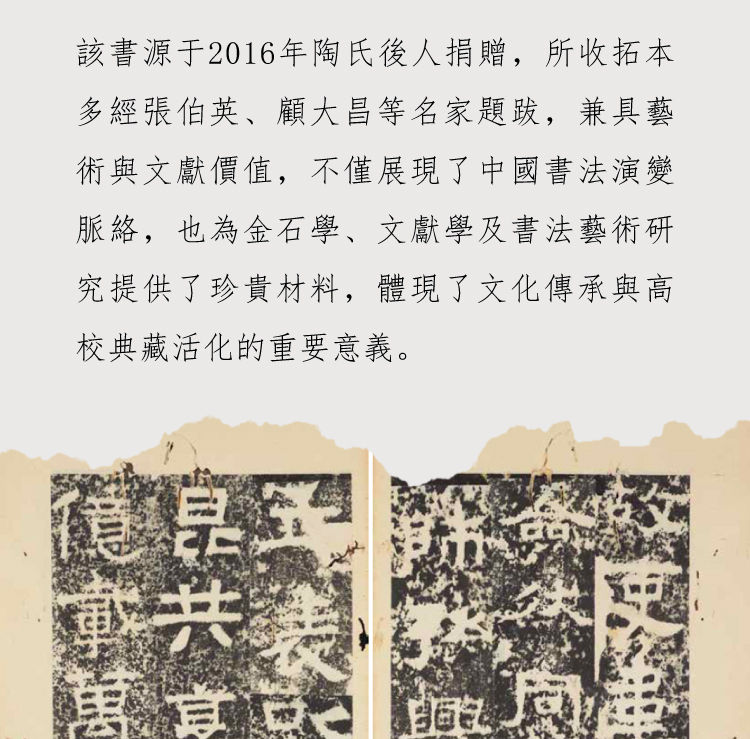 該書源于2016年陶氏後人捐贈，所收拓本
多經張伯英、顧大昌等名家題跋，兼具藝
術與文獻價值，不僅展現了中國書法演變
脈絡，也為金石學、文獻學及書法藝術研
究提供了珍貴材料，體現了文化傳承與高
校典藏活化的重要意義。
故吏韋
僉然同
師孫興
立表以
昆共享
億載萬